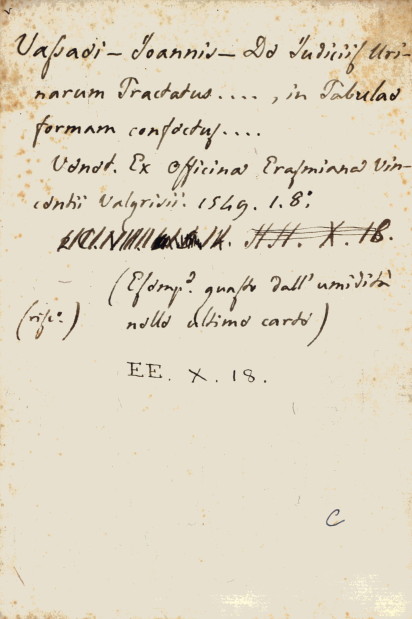 Vassaei - Joannis - De Judiciis Uri-
narum Tractatus...., in Tabulae
formam confectus....
Venet. Ex Officina Erasmiana Vin-
centii Valgrisii. 1549. 1. 8:
HH. X. 18.
(Esemp.º guasto dall'umidità
(risc.º) nelle ultime carte)
EE. X. 18.
C